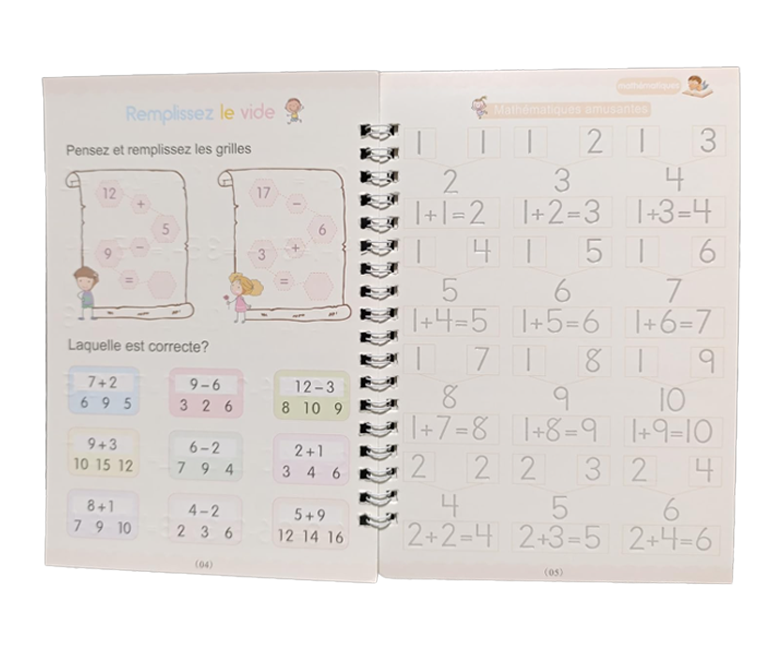 Remplissez le vide
Pensez et remplissez les grilles
12 + 5 − 9 =
17 − 6 + 3 =
Laquelle est correcte?
7+2 9−6 12−3
6 9 5 3 2 6 8 10 9
9+3 6−2 2+1
10 15 12 7 9 4 3 4 6
8+1 4−2 5+9
7 9 10 2 3 6 12 14 16
(04)
mathématiques
Mathématiques amusantes
1 1 1 2 1 3
2 3 4
1+1=2 1+2=3 1+3=4
1 4 1 5 1 6
5 6 7
1+4=5 1+5=6 1+6=7
1 7 1 8 1 9
8 9 10
1+7=8 1+8=9 1+9=10
2 2 2 3 2 4
4 5 6
2+2=4 2+3=5 2+4=6
(05)